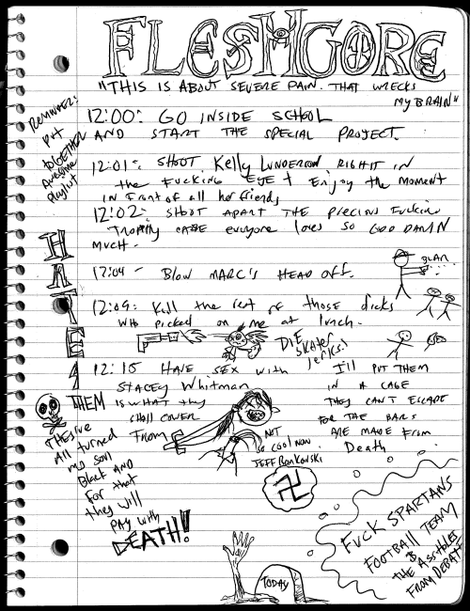 FLESHGORE
"THIS IS ABOUT SEVERE PAIN. THAT WRECKS
MY BRAIN"
REMINDER:
PUT
TOGETHER
AWESOME
PlayList
12:00: GO INSIDE SCHOOL
AND START THE SPECIAL PROJECT.
12:01: SHOOT Kelly LUNDERSON RIGHT IN
the Fucking EYE + Enjoy the MOMENT
IN Front of all her friends
12:02: SHOOT APART THE PRECIOUS Fucking
Trophy CASE everyone loves SO GOD DAMN
MUCH.
HATE!
12:04 - BLOW MARC'S HEAD OFF.
BLAM
12:09: Kill the rest of those dicks
who picked on me at lunch.
DIE
SKATER
JERKS!
12:15 HAVE SEX with
STACEY Whitman
I'll PUT THEM
IN A CAGE
THEY CAN'T ESCAPE
FOR THE BARS
ARE MADE FROM
Death
THEM IS WHAT they
shall COVER
FROM
NOT
SO COOL NOW
JEFF BONKOWSKI
They've
All turned
my soul
Black AND
For that
they will
PAY with
DEATH!
TODAY
FUCK SPARTANS
FOOTBALL TEAM
&
THE ASSHOLES
FROM DEBATE